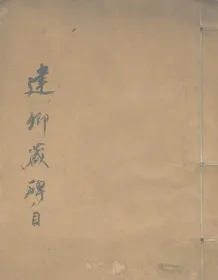 建卿藏碑目